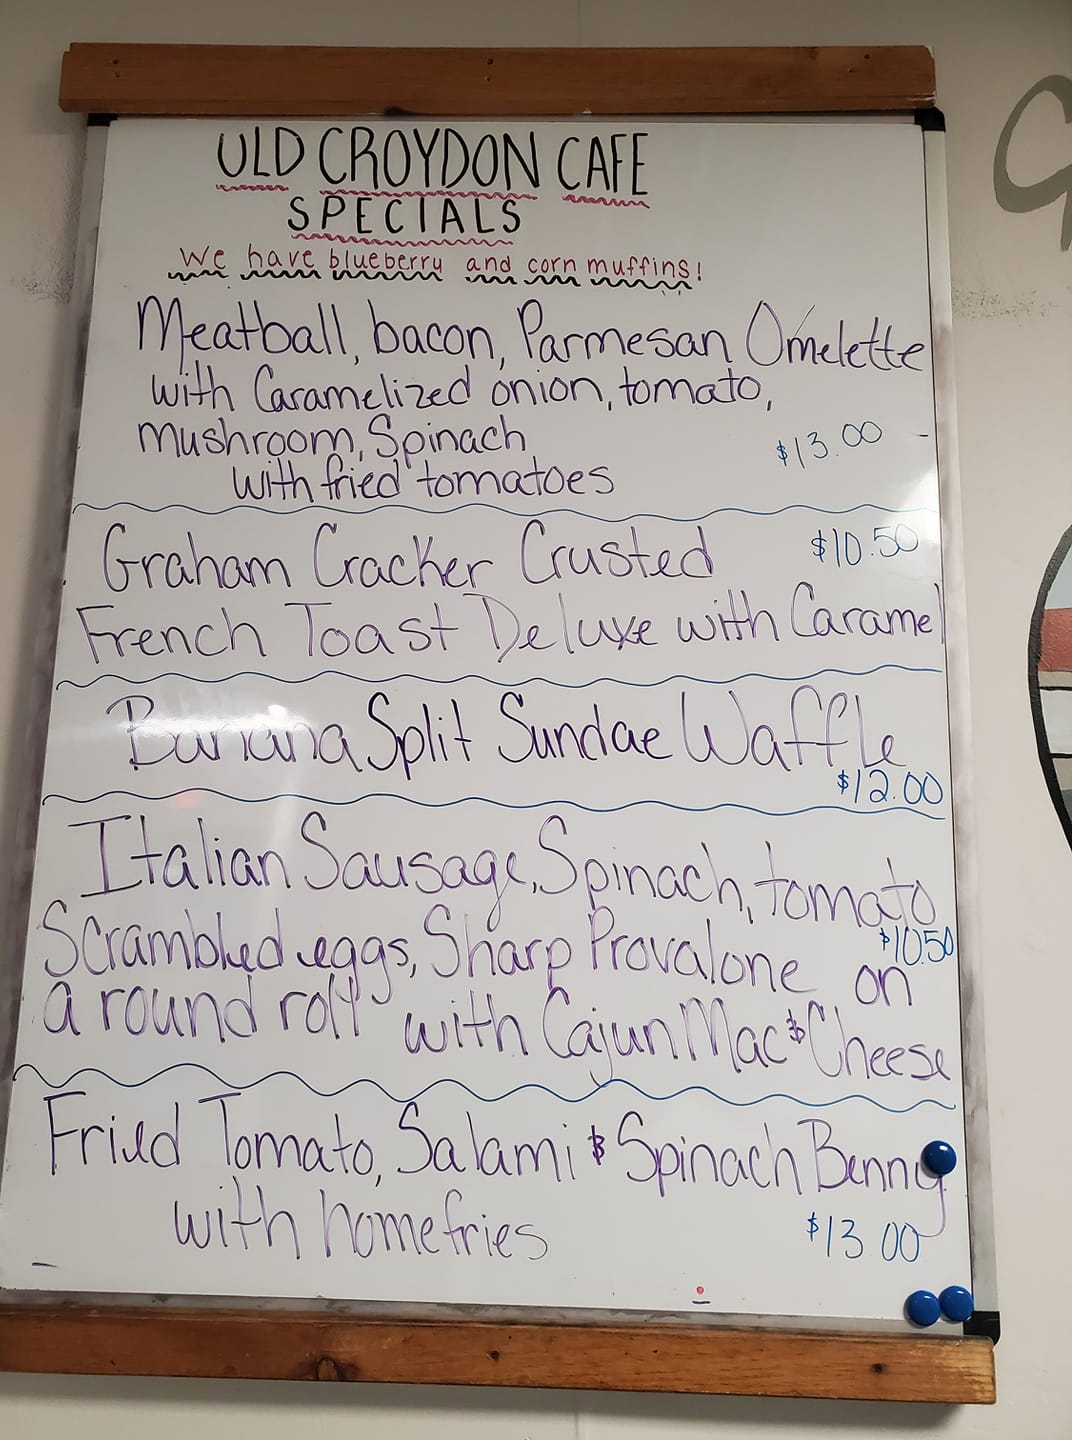 OLD CROYDON CAFE
SPECIALS
We have blueberry and corn muffins!
Meatball, bacon, Parmesan Omelette
with Caramelized onion, tomato,
Mushroom, Spinach
$13.00
with fried tomatoes
Graham Cracker Crusted $10.50
French Toast Deluxe with Caramel
Banana Split Sundae Waffle
$12.00
Italian Sausage, Spinach, tomato
Scrambled eggs, Sharp Provalone on
$10.50
a round roll with Cajun Mac & Cheese
Fried Tomato, Salami & Spinach Benny
with homefries $13.00